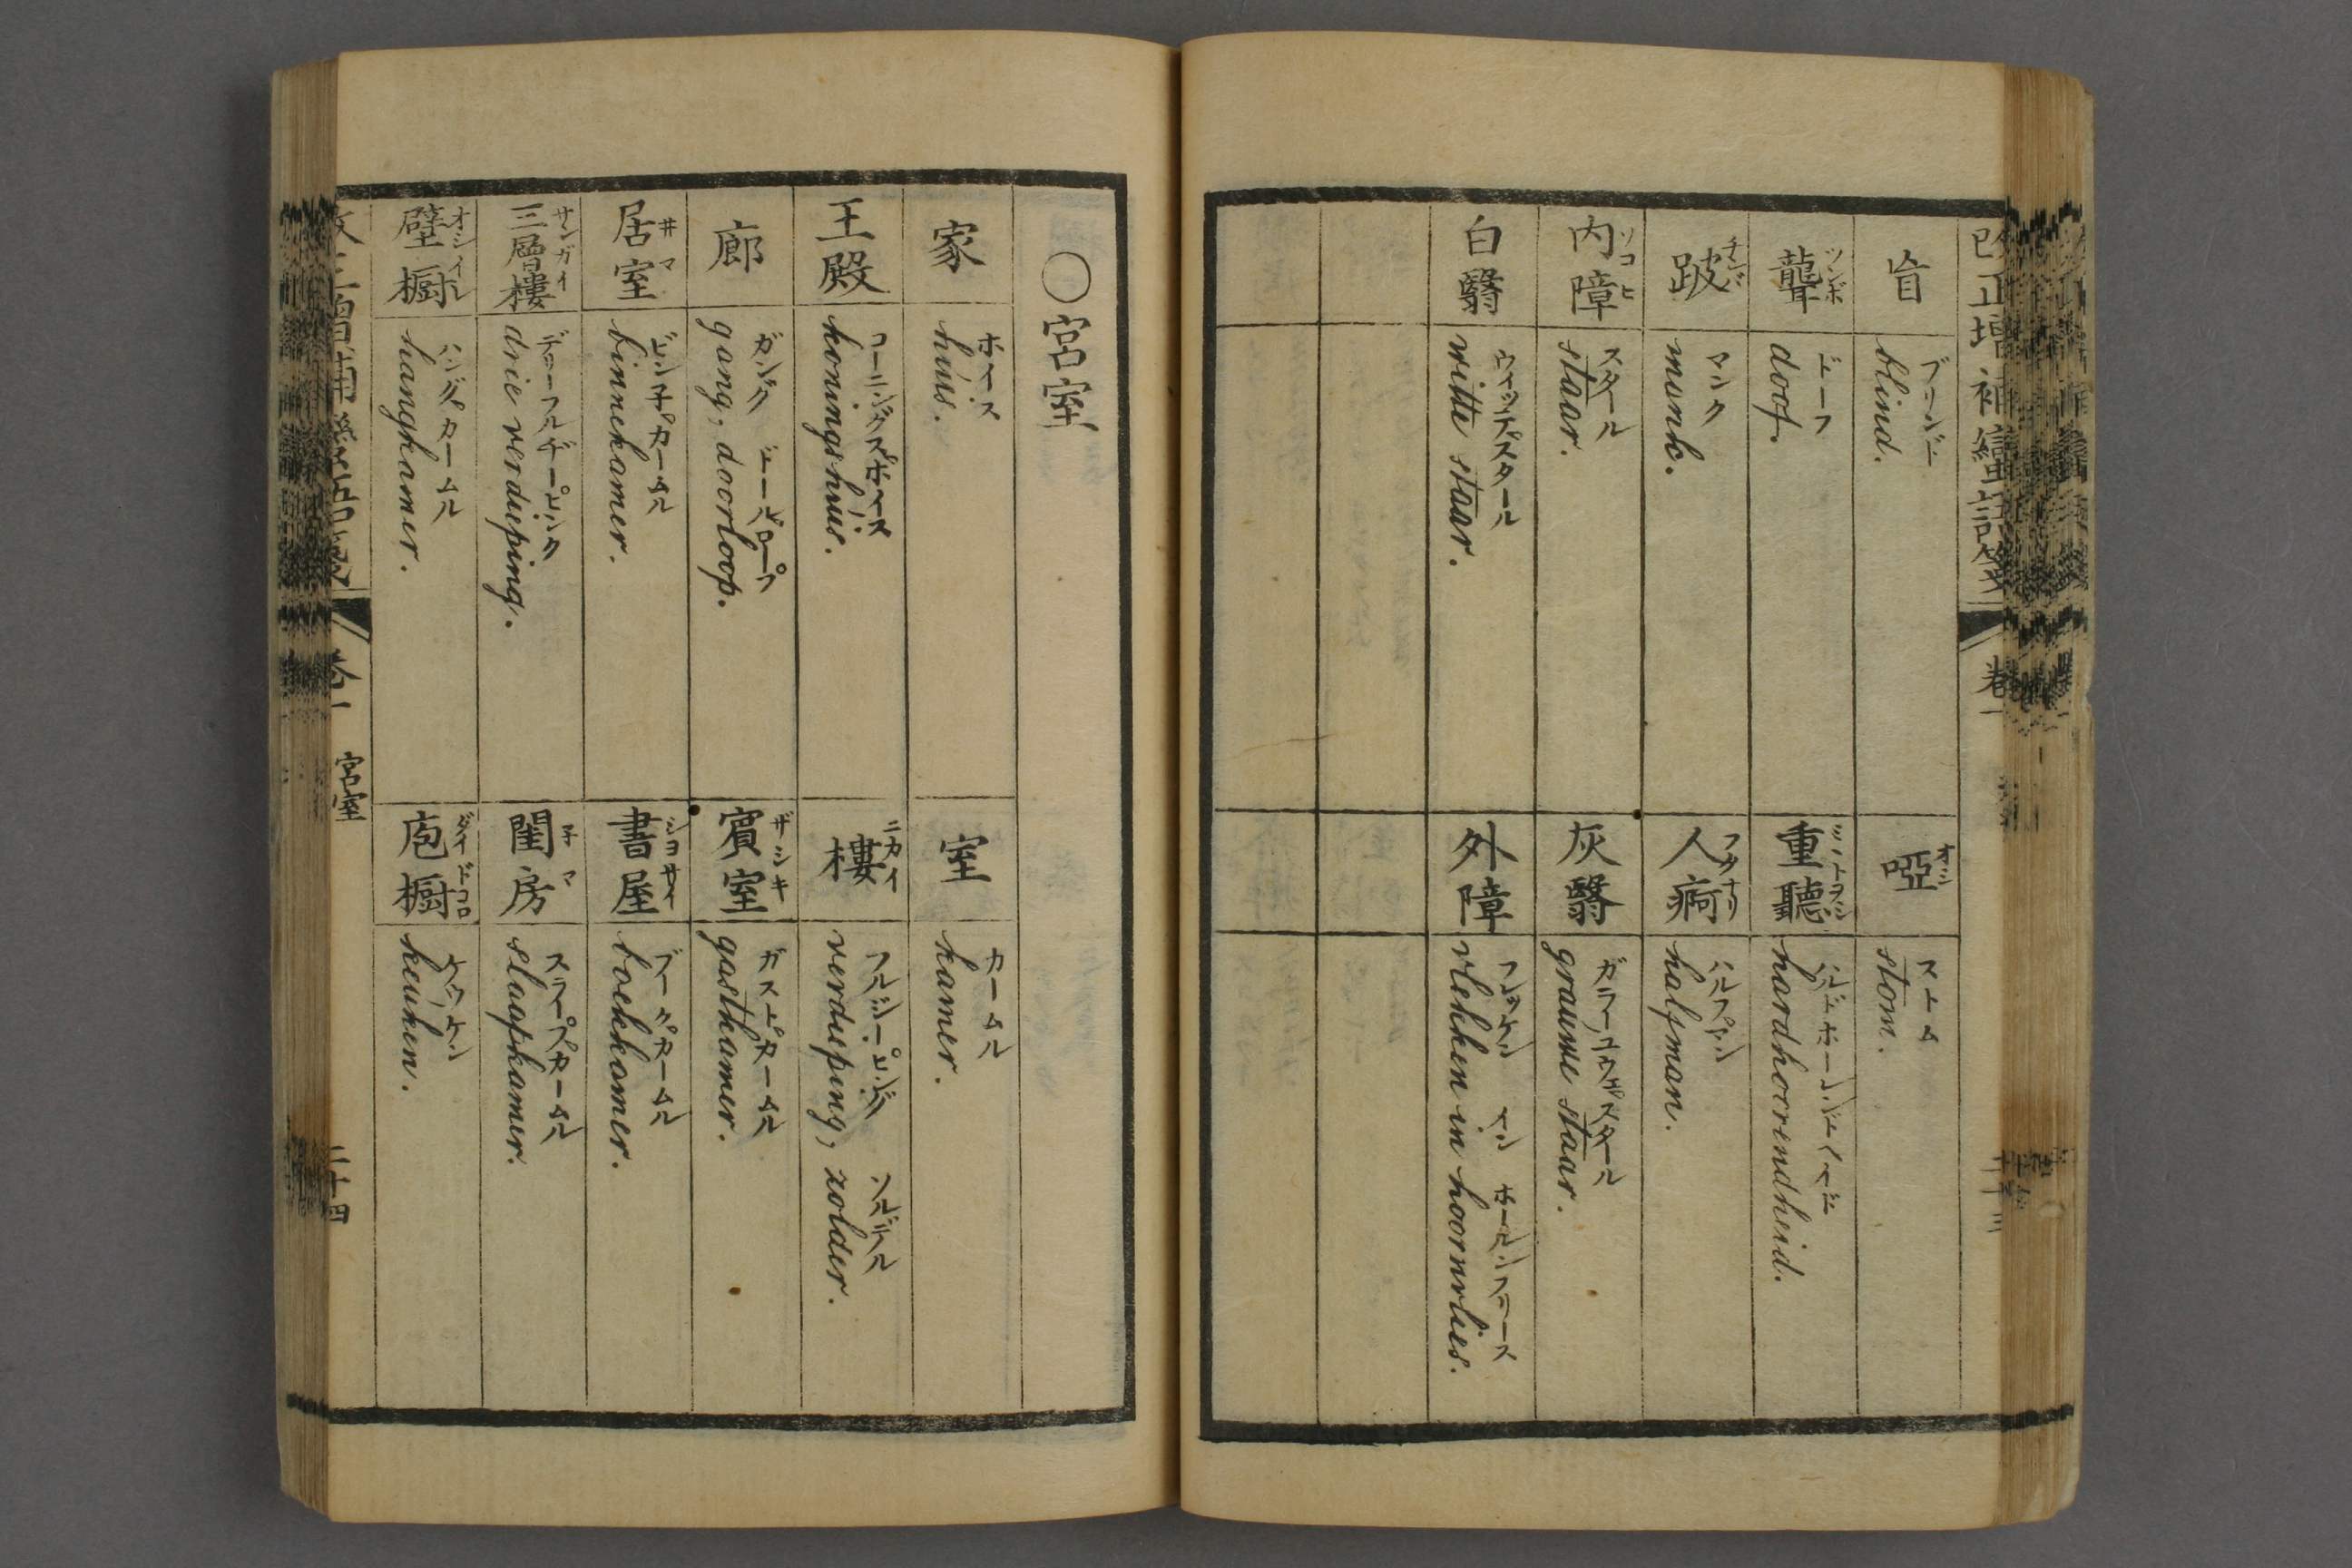 改正増補蠻語箋
卷一
二十三
盲
ブリンド
blind.
啞
オシ
ストム
stom.
聾
ツンボ
ドーフ
doof.
重聽
ミヽトヲシ
hardhoorendheid.
跛
チンバ
マンク
mank.
人痾
フタナリ
ハルフマン
halfman.
内障
ソコヒ
スタール
staar.
灰翳
ガラーユウェスタール
graauwe staar.
白翳
ウィッテスタール
witte staar.
外障
フレッケン イン ホールンフリース
vlekken in hoornvlies.
〇宮室
家
ホイス
huis.
室
カームル
kamer.
王殿
コーニングスホイス
koningshuis.
樓
ニカイ
フルジーピング ソルデル
verdieping, zolder.
廊
ガング ドールロープ
gang, doorloop.
賓室
ザシキ
ガストカームル
gastkamer.
居室
井マ
ビンネカームル
binnekamer.
書屋
シヨサイ
ブークカームル
boekkamer.
三層樓
サンガイ
デリーフルヂーピンク
drie verdieping.
閨房
子マ
スラープカームル
slaapkamer.
壁橱
オシイレ
ハングカームル
hangkamer.
庖橱
ダイドコロ
ケウケン
keuken.
宮室
二十四